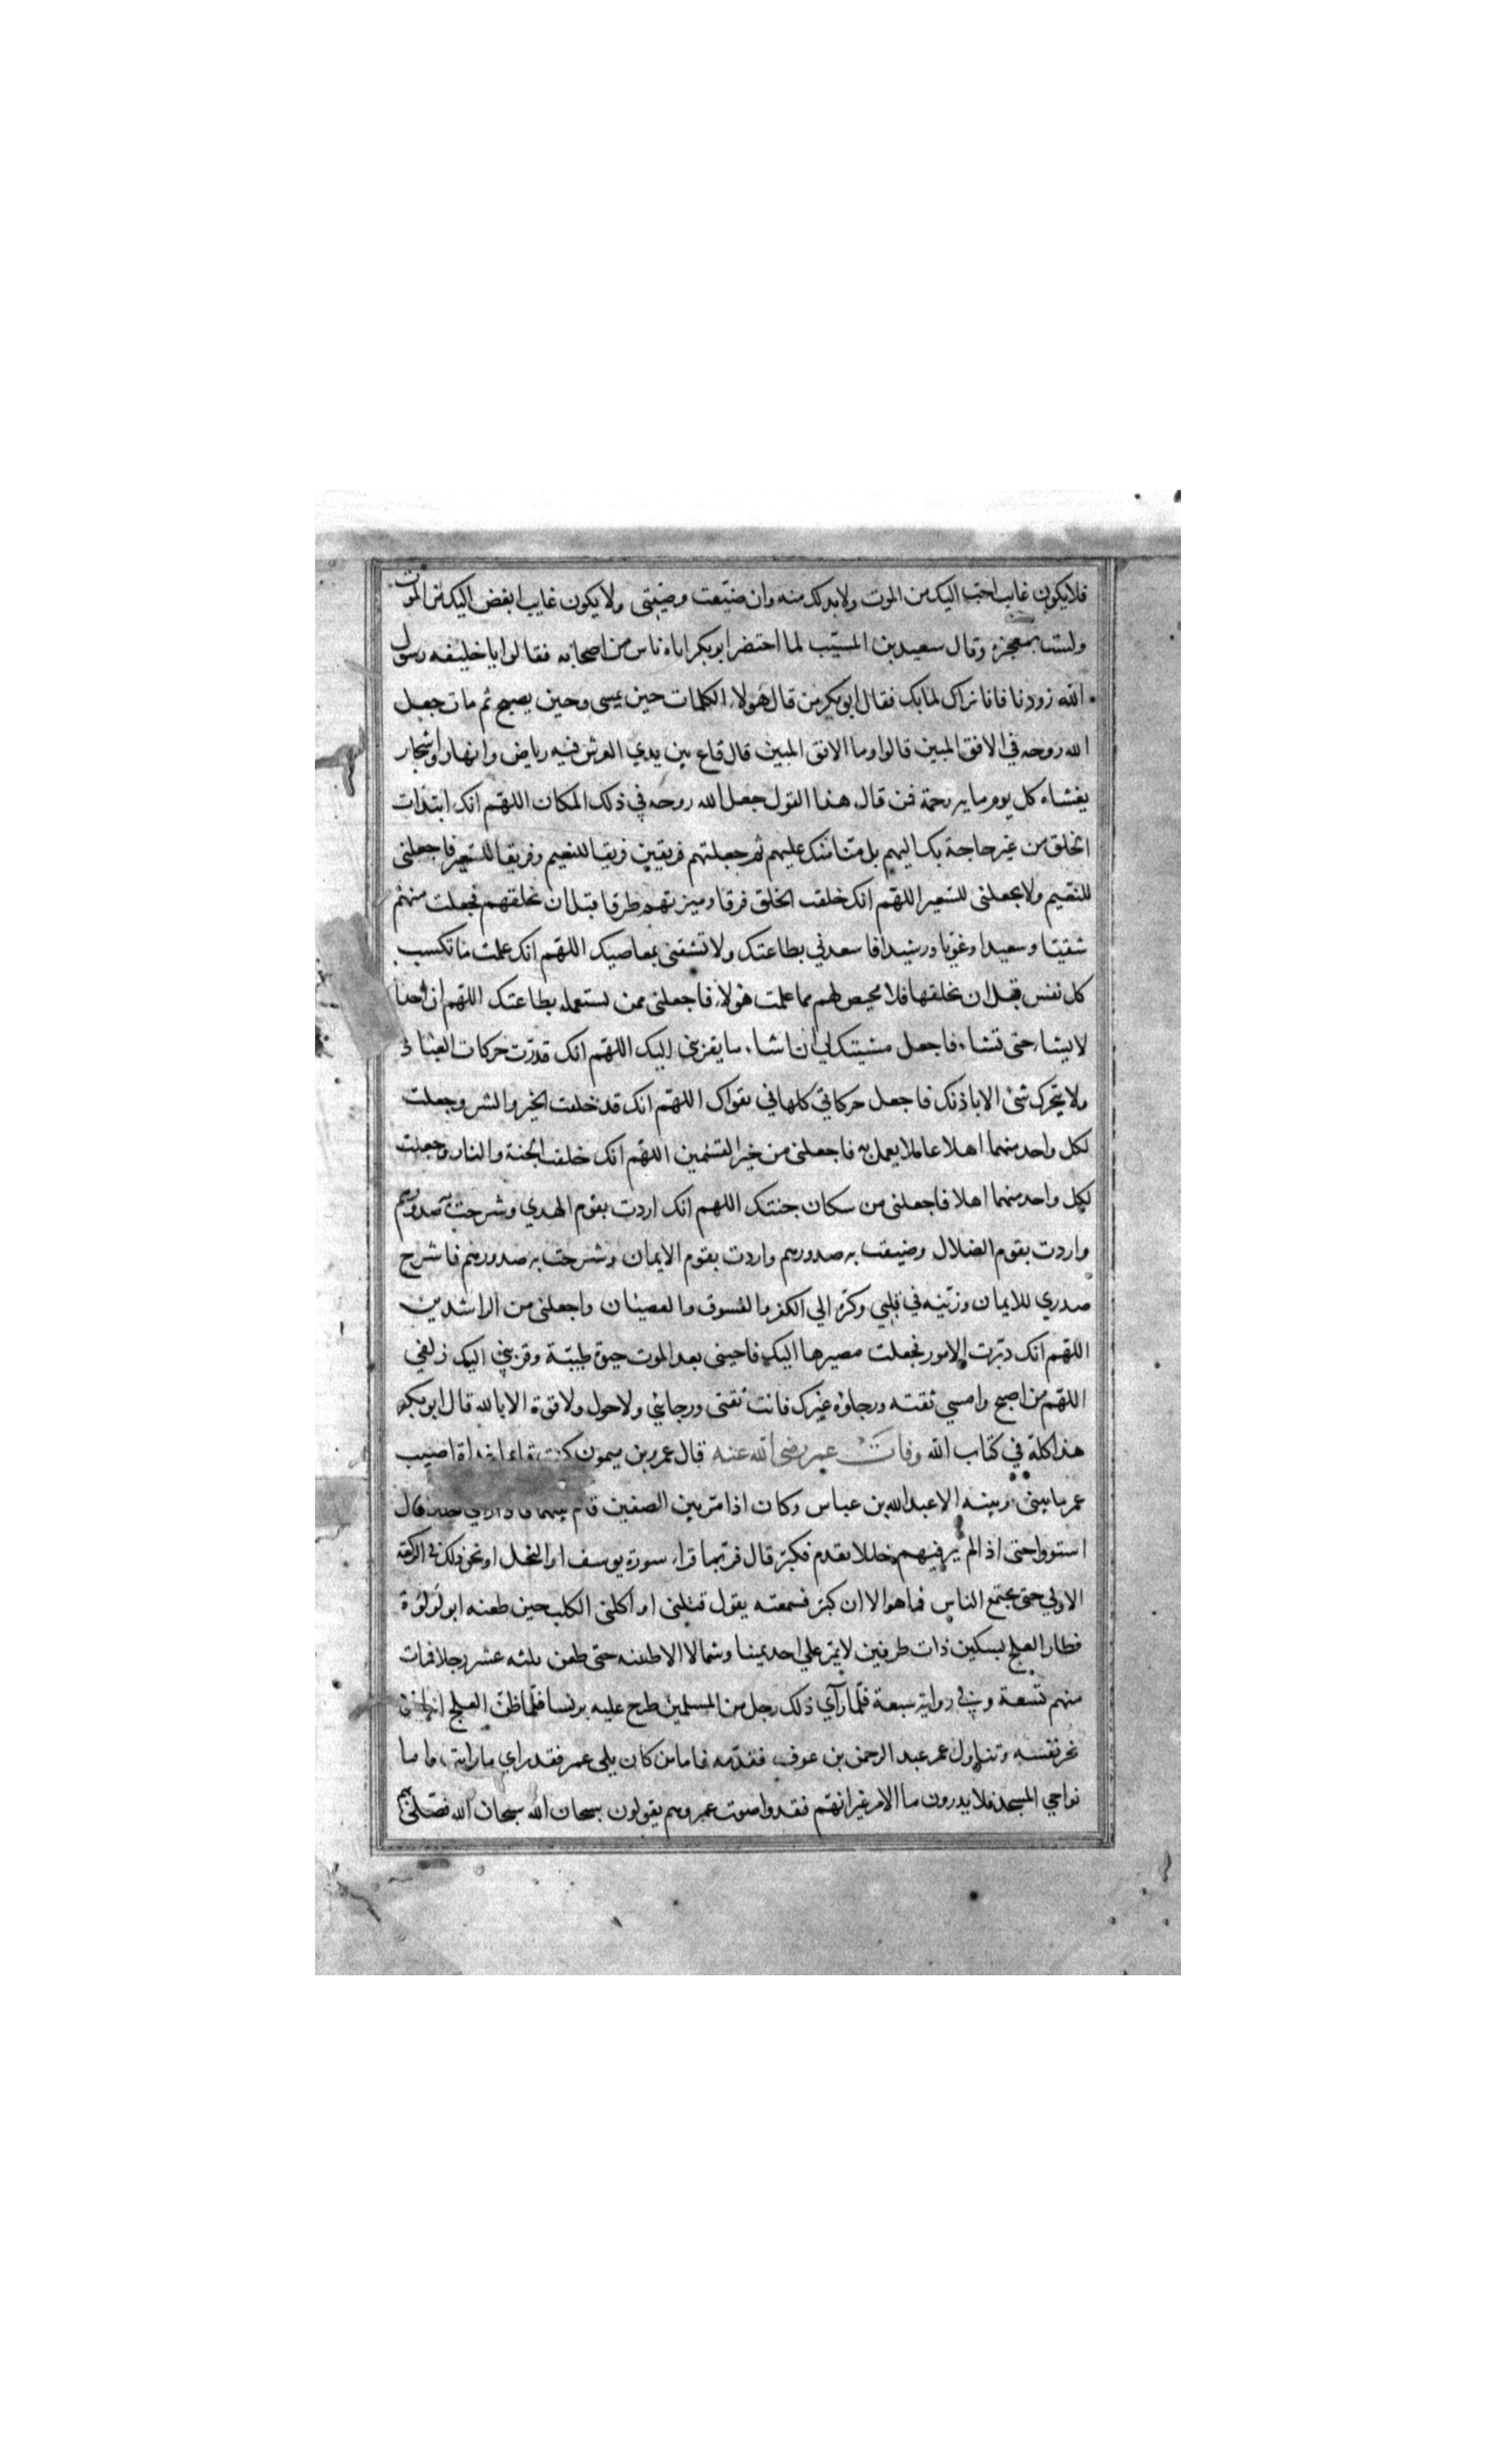 فلايكون غايب احب اليك من الموت ولابد لك منه وان ضيعت وصيتي ولايكون غايب ابغض اليك من الموت
ولست بمعجزه وقال سعيد بن المسيب لما احتضر ابوبكر اتاه ناس من اصحابه فقالوا يا خليفه رسول
الله زودنا فانا نراك لمابك فقال ابوبكر من قال هولاء الكلمات حين يمسى وحين يصبح ثم مات جعل
الله روحه في الافق المبين قالوا وما الافق المبين قال قاع بين يدي العرش فيه رياض وانهار واشجار
يغشاه كل يوم مايه رحمة فمن قال هذا القول جعل الله روحه في ذلك المكان اللهم انك ابتدات
الخلق من غير حاجة بك اليهم بل منا منك عليهم ثم جعلتهم فريقين فريقا للنعيم وفريقا للسعير فاجعلنى
للنعيم ولا تجعلنى للسعير اللهم انك خلقت الخلق فرقا وميزتهم طرقا قبل ان تخلقهم فجعلت منهم
شقيا وسعيدا وغويا ورشيدا فاسعدني بطاعتك ولا تشقنى بمعاصيك اللهم انك علمت ما تكسب
كل نفس قبل ان تخلقها فلا محيص لهم مما علمت فاجعلنى ممن تستعمله بطاعتك اللهم ان احدا
لا يشاء حتى تشاء فاجعل مشيتك لي ان اشاء ما يقربني اليك اللهم انك قدرت حركات العباد
ولا يتحرك شئ الا باذنك فاجعل حركاتي كلها في تقواك اللهم انك قد خلقت الخير والشر وجعلت
لكل واحد منهما اهلا عاملا يعمل به فاجعلنى من خير القسمين اللهم انك خلقت الجنة والنار وجعلت
لكل واحد منهما اهلا فاجعلنى من سكان جنتك اللهم انك اردت بقوم الهدي وشرحت به صدورهم
واردت بقوم الضلال وضيقت به صدورهم واردت بقوم الايمان وشرحت به صدورهم فاشرح
صدري للايمان وزينه في قلبي وكره الي الكفر والفسوق والعصيان واجعلنى من الراشدين
اللهم انك دبرت الامور فجعلت مصيرها اليك فاحينى بعد الموت حيوة طيبة وقربني اليك زلفي
اللهم من اصبح وامسي ثقته ورجاؤه غيرك فانت ثقتى ورجائي ولاحول ولاقوة الا بالله قال ابوبكر
هذا كله في كتاب الله وفات عمر رضى الله عنه قال عمرو بن ميمون كنت غداة اصيب
عمر ما بينى وبينه الا عبد الله بن عباس وكان اذا مر بين الصفين قام بينهما فاذا راي خللا قال
استووا حتى اذا لم ير فيهم خللا تقدم فكبر قال فربما قرا سورة يوسف او النحل او نحو ذلك في الركعة
الاولي حتى يجتمع الناس فما هو الا ان كبر فسمعته يقول قتلنى او اكلنى الكلب حين طعنه ابو لولوة
فطار العلج بسكين ذات طرفين لا يمر علي احد يمينا وشمالا الا طعنه حتى طعن ثلثه عشر رجلا فمات
منهم تسعة وفي رواية سبعة فلما راي ذلك رجل من المسلمين طرح عليه برنسا فلما ظن العلج انه
نحر نفسه وتناول عمر عبد الرحمن بن عوف فقدمه فاما من كان يلى عمر فقد راي ما رايت واما
نواحي المسجد فلا يدرون ما الامر غير انهم فقدوا صوت عمر وهم يقولون سبحان الله سبحان الله فصلى